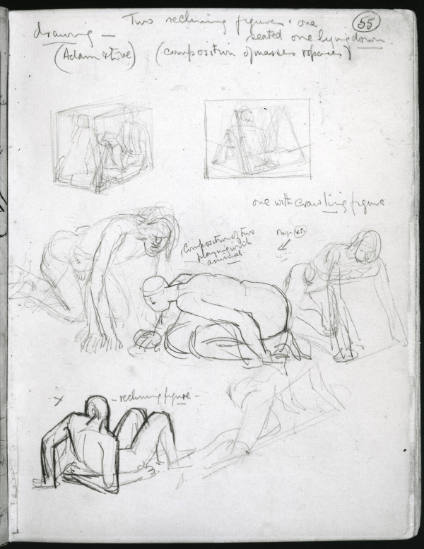 Two reclining figures. one
drawing — seated one lying down
55
(Adam & Eve) (Composition of masses & spaces)
one with crawling figure
Composition of two
playing with
animal
x - reclining figure -